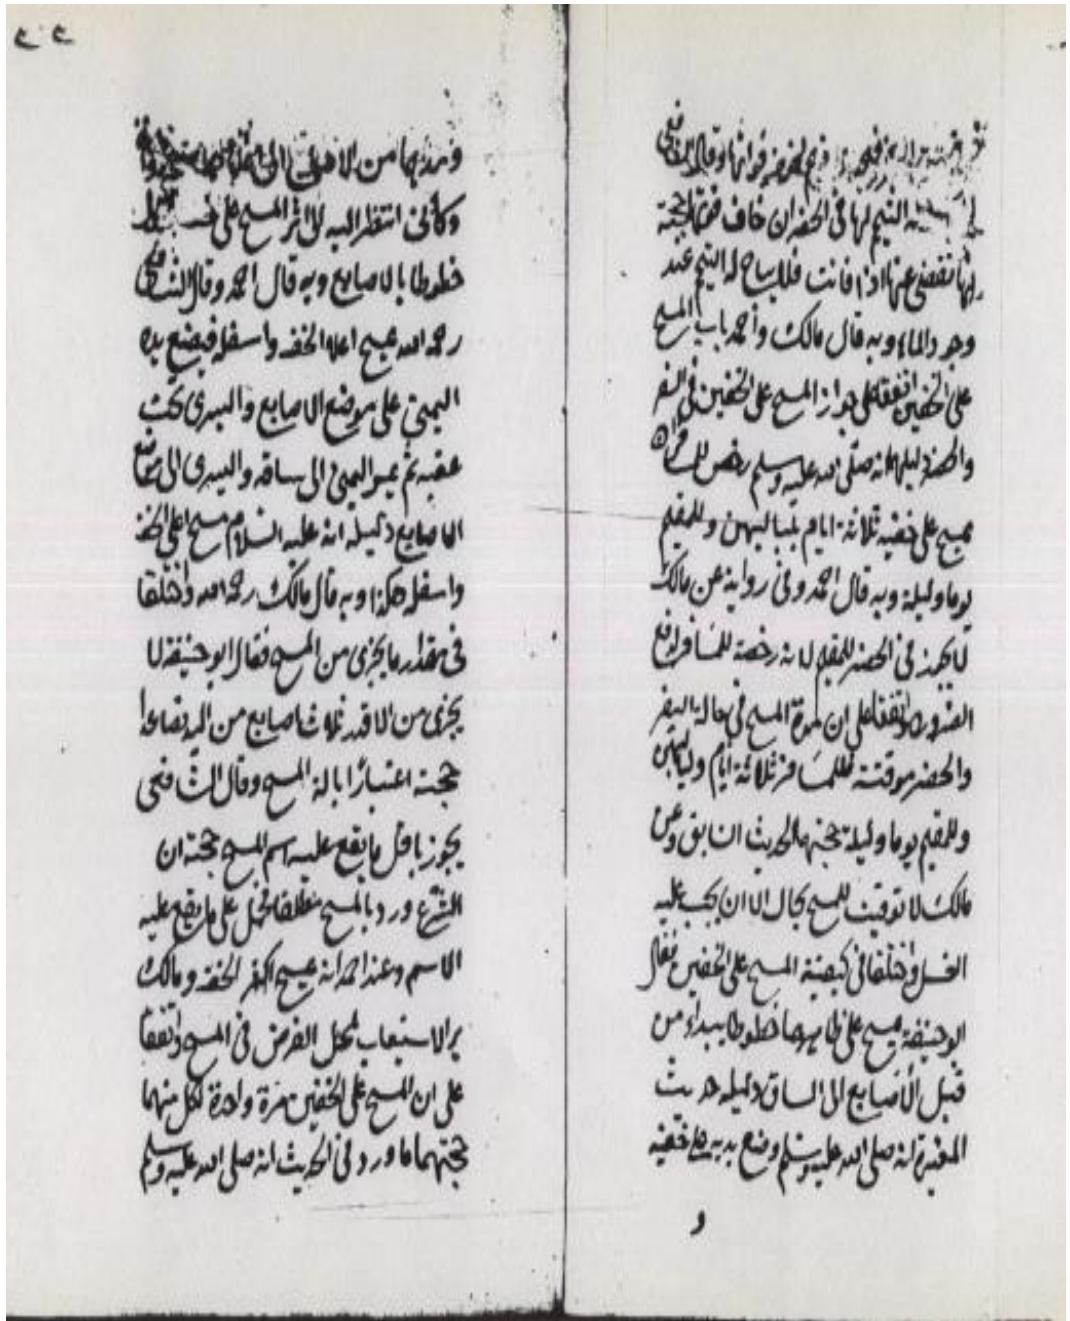 لها في الحضر ان خاف فوتها لحجة
انها تقضى عنها اذا فاتت فلا يباح له التيمم عند
وجود الماء وبه قال مالك وأحمد باب المسح
على الخفين اتفقا على جواز المسح على الخفين في السفر
والحضر دليلهما انه صلى الله عليه وسلم رخص للمسافر ان
يمسح على خفيه ثلاثة ايام بلياليهن وللمقيم
يوما وليلة وبه قال احمد وفى رواية عن مالك
في الحضر للمقيم لانه رخصة للمسافر لدفع
الضرورة واتفقا على ان مدة المسح في حالة السفر
والحضر موقتة للمسافر ثلاثة أيام ولياليهن
وللمقيم يوما وليلة حجتهما الحديث السابق وعن
مالك لا توقيت للمسح بحال الا ان يجب عليه
الغسل واختلفا في كيفية المسح على الخفين فقال
ابو حنيفة يمسح على ظاهرهما خطوطا يبداء من
قبل الأصابع الى الساق دليله حديث
المغيرة انه صلى الله عليه وسلم وضع يديه على خفيه
و
٢٢
ومدهما من الاصابع الى
وكأنى انتظر اليه الى اثر المسح على
خطوطا بالاصابع وبه قال احمد وقال الشافعى
رحمه الله يمسح اعلا الخف واسفله فيضع يده
اليمنى على موضع الاصابع واليسرى تحت
عقبه ثم يمر اليمنى الى ساقه واليسرى الى موضع
الاصابع دليله انه عليه السلام مسح اعلى الخف
واسفله هكذا وبه قال مالك رحمه الله واختلفا
فى مقدار ما يجزى من المسح فقال ابو حنيفة لا
يجزى من الا قدر ثلاث اصابع من اليد فصاعدا
حجته اعتبارا بالة المسح وقال الشافعى
يجوز باقل ما يقع عليه اسم المسح حجته ان
الشرع ورد بالمسح مطلقا فحمل على ما يقع عليه
الاسم وعند احمد انه يمسح اكثر الخف ومالك
يرى الاستيعاب لمحل الفرض فى المسح واتفقا
على ان المسح على الخفين مرة واحدة لكل منهما
حجتهما ما ورد فى الحديث انه صلى الله عليه وسلم